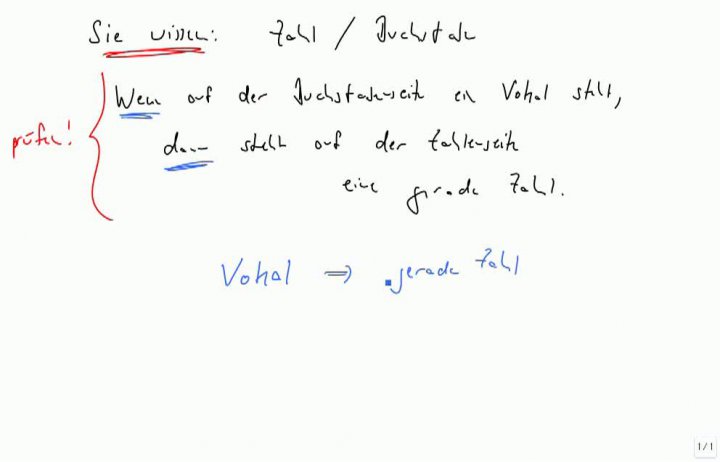 Sie wissen: Zahl / Buchstabe
prüfen!
Wenn auf der Buchstabenseite ein Vokal steht,
dann steht auf der Zahlenseite
eine gerade Zahl.
Vokal ⇒ gerade Zahl
1/1